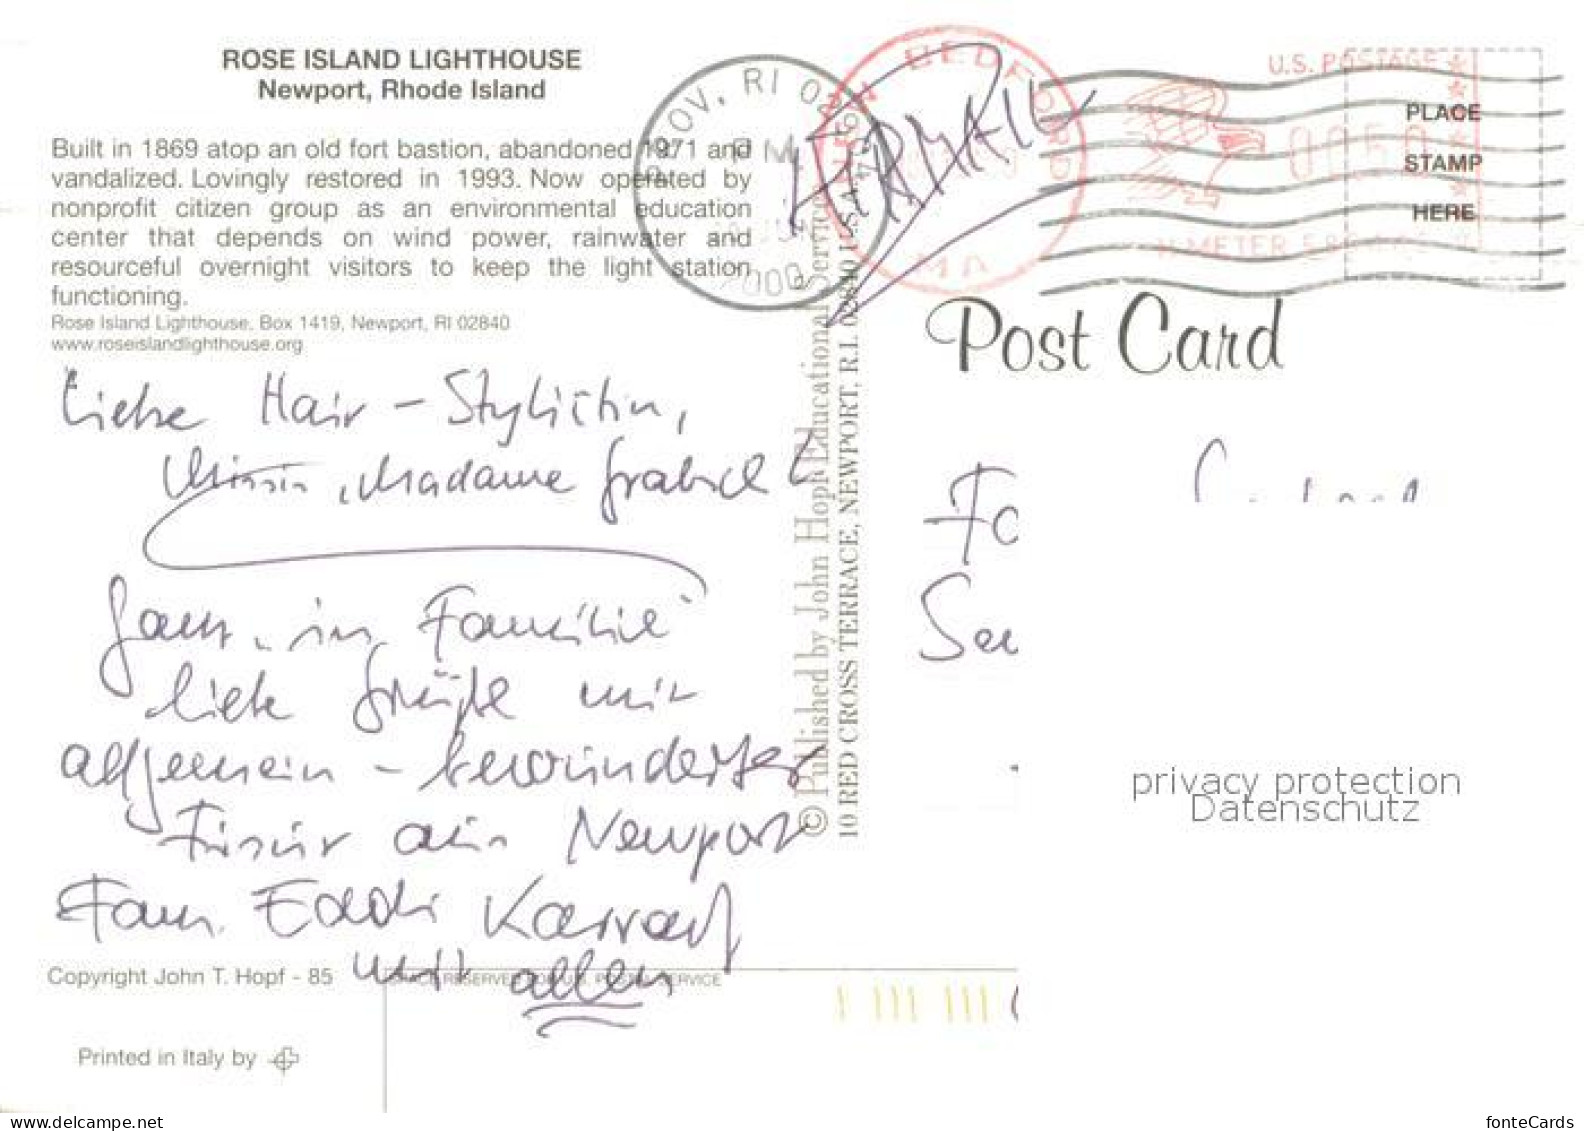 ROSE ISLAND LIGHTHOUSE
Newport, Rhode Island
Built in 1869 atop an old fort bastion, abandoned 1971 and
vandalized. Lovingly restored in 1993. Now operated by
nonprofit citizen group as an environmental education
center that depends on wind power, rainwater and
resourceful overnight visitors to keep the light station
functioning.
Rose Island Lighthouse, Box 1419, Newport, RI 02840
www.roseislandlighthouse.org
Liebe Hair-Stylistin,
Madame
ganz "in Familie"
liebe Grüße mit
allgemein - bewunderter
Frisur aus Newport
Fam. Eddi
mit allen
Copyright John T. Hopf - 85
SPACE RESERVED FOR U.S. POSTAL SERVICE
Printed in Italy by
© Published by John Hopf Educational Service
10 RED CROSS TERRACE, NEWPORT, R.I. 02840 U.S.A.
PROV, RI
PM
2000
NEW BEDFORD
MA
AIRMAIL
U.S. POSTAGE
METER
PLACE
STAMP
HERE
Post Card
privacy protection
Datenschutz
www.delcampe.net
fonteCards